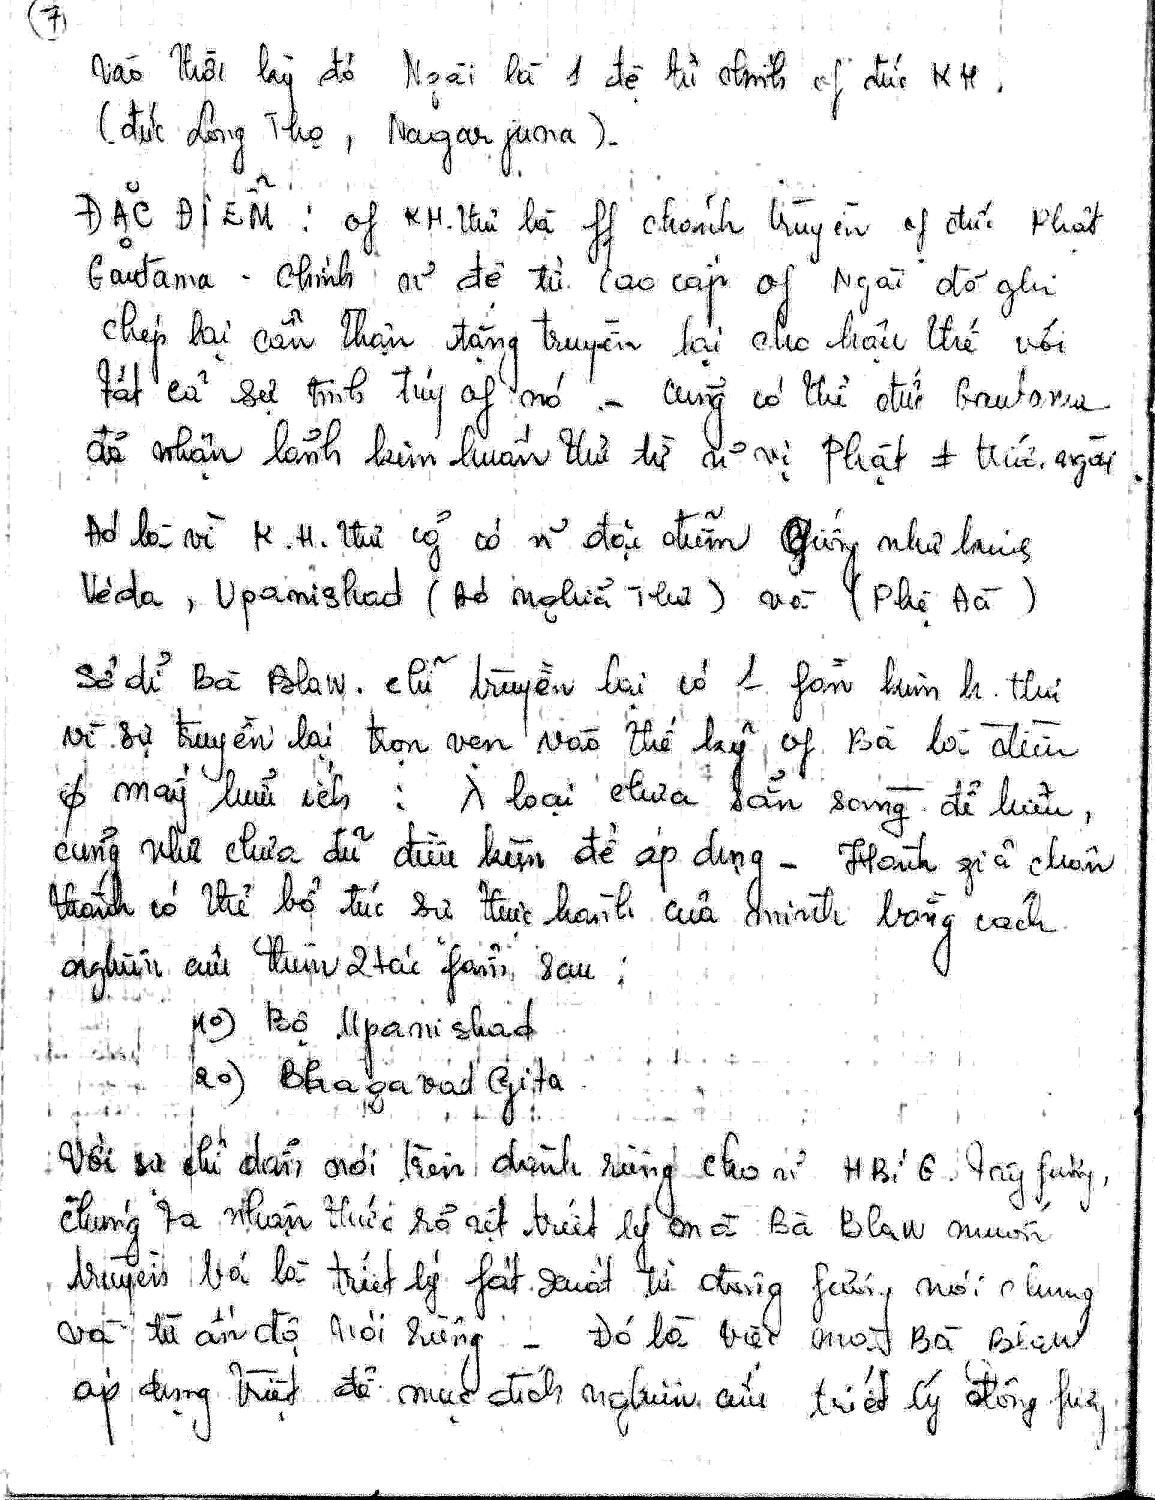 7
vào thời kỳ đó Ngài là 1 đệ tử chính of đức KH.
(đức Long Thọ, Nagarjuna).
ĐẶC ĐIỂM : of KH. thư là ff chánh truyền of đức Phật
Gautama - Chính n² đệ tử cao cấp of Ngài đã ghi
chép lại cẩn thận đặng truyền lại cho hậu thế với
tất cả sự tinh túy of nó . - cũng có thể đức Gautama
đã nhận lảnh kim huấn thư từ n² vị Phật ± trước ngài.
Đó là vì K.H. thư cổ có n² đặc điểm giống như kinh
Véda, Upanishad (Áo nghĩa Thư) và (Phệ Đà)
Sở dĩ Bà Blaw. chỉ truyền lại có 1 fần kim h. thư
vì sự truyền lại trọn vẹn vào thế kỷ of Bà là điều
φ mấy hữu ích : λ loại chưa sẳn sàng để hiểu,
cũng như chưa đủ điều kiện để áp dụng - Hành giả chân
thành có thể bổ túc sự thực hành của mình bằng cách
nghiên cứu thêm 2 tác fẩm sau :
1o) Bộ Upanishad
2o) Bhagavad Gita
Với sự chỉ dẩn nói trên dành riêng cho n² HBíG. Tây fương,
chúng ta nhận thức rỏ rệt triết lý mà Bà Blaw muốn
truyền bá là triết lý fát xuất từ đông fương nói chung
và từ ấn độ nói riêng - Đó là việc mà Bà Blaw
áp dụng triệt để mục đích nghiên cứu triết lý đông fương